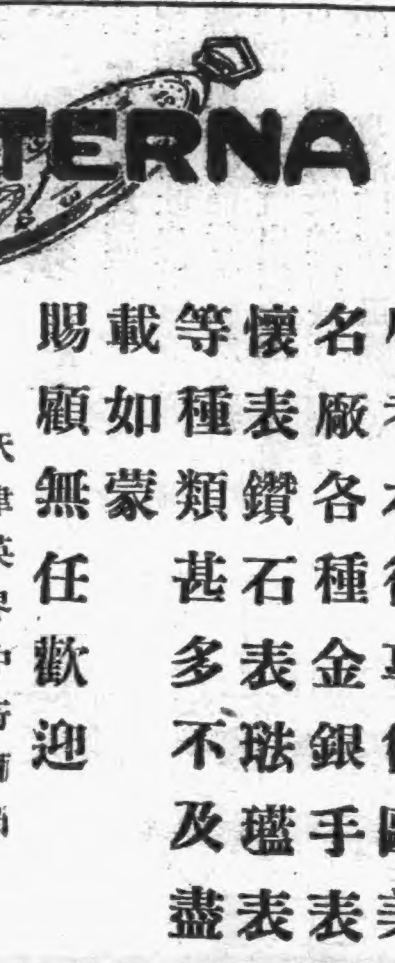 TERNA
名廠各種金銀手表
懷表鑽石表琺瓓表
等種類甚多不及盡
載如蒙
賜顧無任歡迎